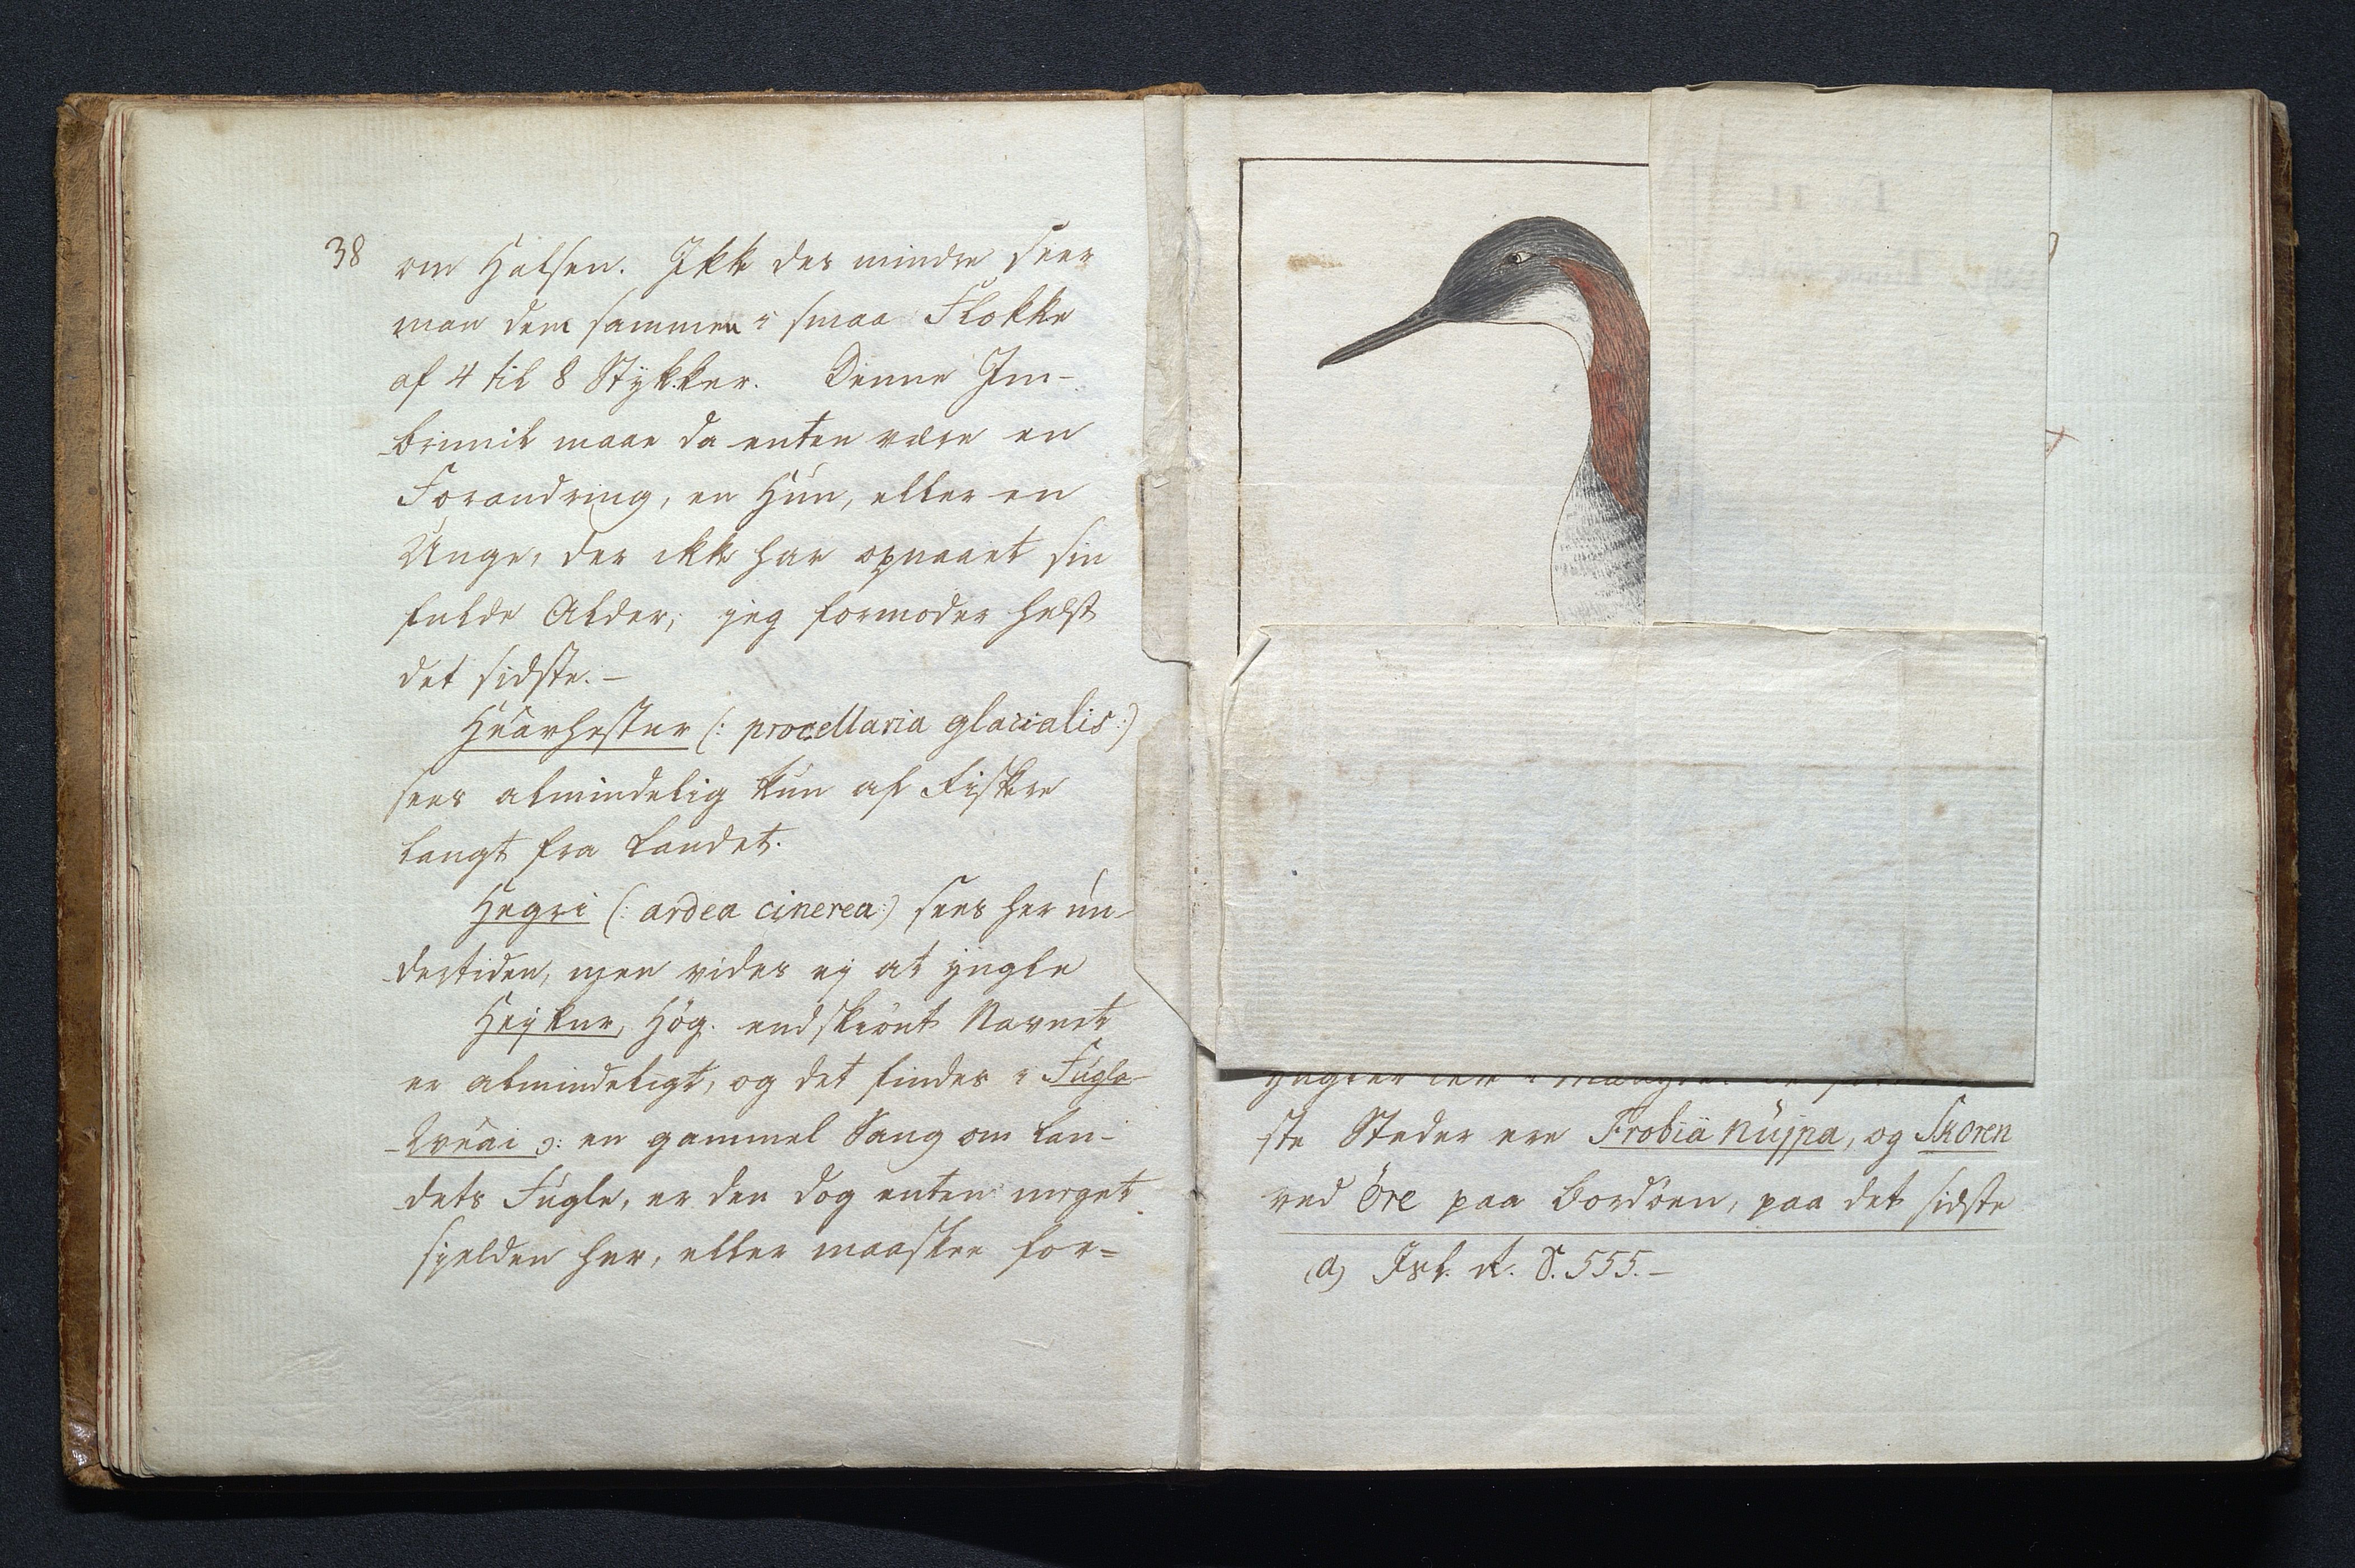 38
om Halsen. Ikke des mindre seer
man dem sammen i smaa Flokke
af 4 til 8 Stykker. Denne Im-
brimil maae da enten være en
Forandring, en Hun, eller en
Unge, der ikke har opnaaet sin
fulde Alder; jeg formoder helst
det sidste. –
Héarhestur (: procellaria glacialis :)
sees almindelig kun af Fiskere
langt fra Landet.
Hegri (: ardea cinerea :) sees her un-
dertiden, men vides ej at yngle
Hejkur, Hög. endskiönt Navnet
er almindeligt, og det findes i Fugla-
Qvéai ɔ: en gammel Sang om Lan-
dets Fugle, er den dog enten meget
sjelden her, eller maaskee for=
ste Steder ere Frobiä nüjpa, og Skoren
ved Öre paa Bordöen, paa det sidste
(a) Isl. R. S. 555. –